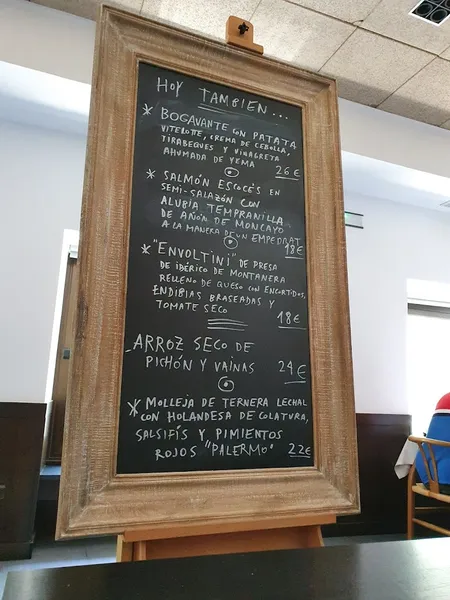 HOY TAMBIEN...
* BOGAVANTE CON PATATA
VITELOTTE, CREMA DE CEBOLLA,
TIRABEQUES Y VINAGRETA
AHUMADA DE YEMA
26 €
* SALMÓN ESCOCÉS EN
SEMI-SALAZÓN CON
ALUBIA TEMPRANILLA
DE AÑÓN DE MONCAYO
A LA MANERA DE UN EMPEDRAT
18 €
* "ENVOLTINI" DE PRESA
DE IBÉRICO DE MONTANERA
RELLENO DE QUESO CON ENCURTIDOS,
ENDIBIAS BRASEADAS Y
TOMATE SECO
18 €
-ARROZ SECO DE
PICHÓN Y VAINAS 24 €
* MOLLEJA DE TERNERA LECHAL
CON HOLANDESA DE COLATURA,
SALSIFÍS Y PIMIENTOS
ROJOS "PALERMO" 22 €